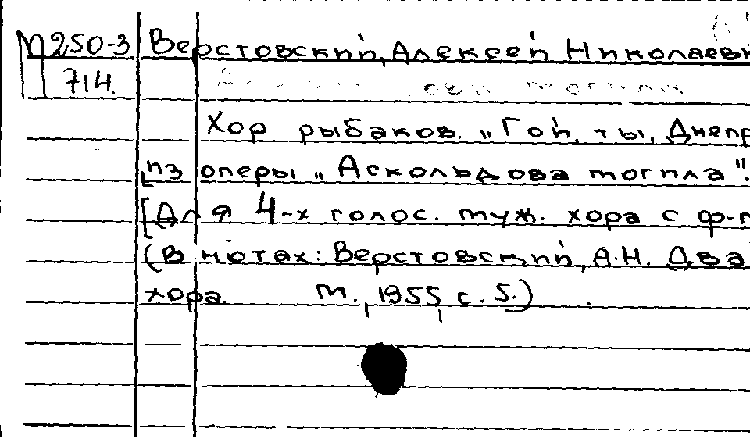 М 250-3 Верстовский, Алексей Николаеви
714.
Хор рыбаков „Гой, ты, Днепр
из оперы „Аскольдова могила".
[Для 4-х голос. муж. хора с ф-п
(В нотах: Верстовский, А.Н. Два
хора. М., 1955, с. 5.)